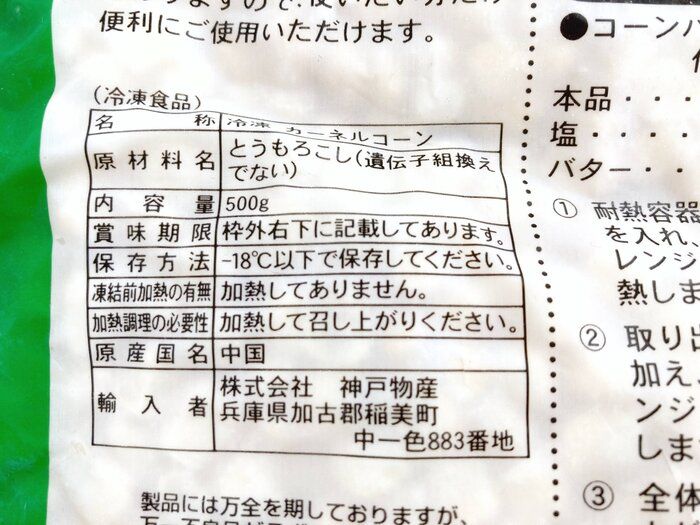 便利にご使用いただけます。
(冷凍食品)
名称 冷凍 カーネルコーン
原材料名 とうもろこし(遺伝子組換え
でない)
内容量 500g
賞味期限 枠外右下に記載してあります。
保存方法 -18℃以下で保存してください。
凍結前加熱の有無 加熱してありません。
加熱調理の必要性 加熱して召し上がりください。
原産国名 中国
輸入者 株式会社 神戸物産
兵庫県加古郡稲美町
中一色883番地
製品には万全を期しておりますが、
●コーンバ
本品・・・
塩・・・・
バター・・
① 耐熱容器
を入れ、
レンジ
熱しま
② 取り出
加え
ンジ
しま
③ 全体